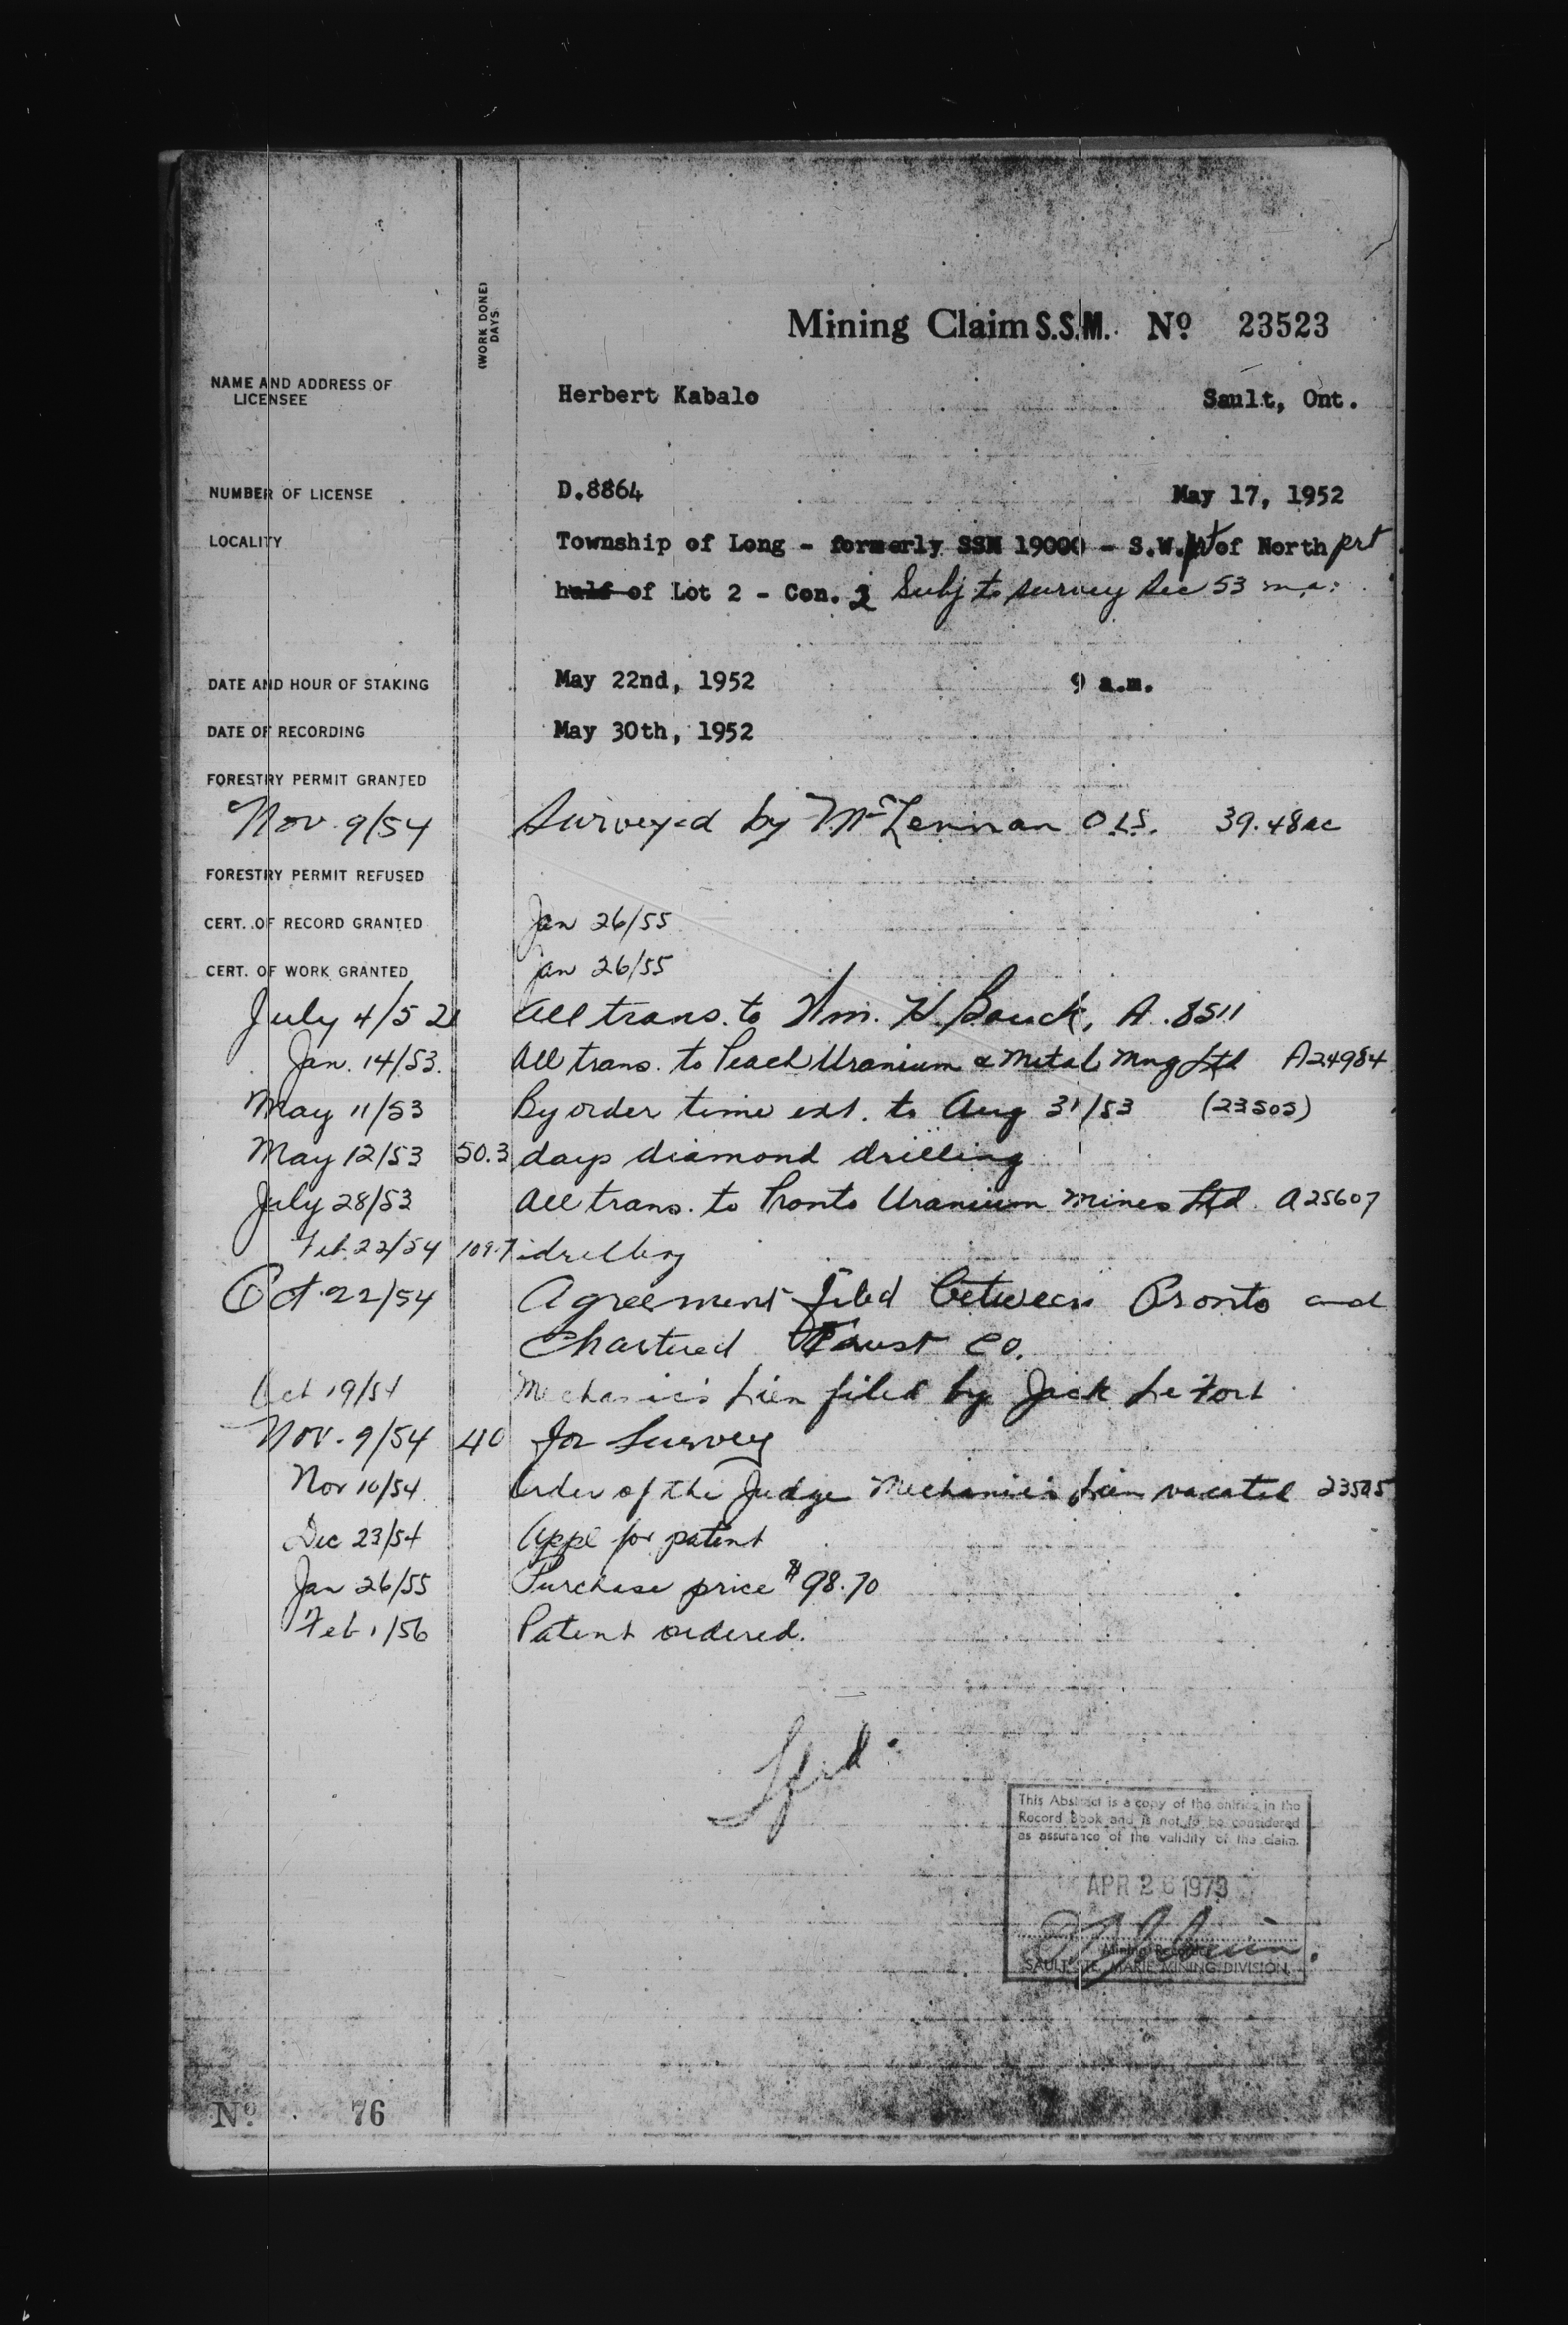 (WORK DONE) DAYS
Mining Claim S.S.M. Nº 23523
NAME AND ADDRESS OF LICENSEE
Herbert Kabalo Sault, Ont.
NUMBER OF LICENSE D.8864 May 17, 1952
LOCALITY Township of Long - formerly SSM 19000 - S.W. pt of North prt
half of Lot 2 - Con. 2 Subj to survey Sec 53 m.a.
DATE AND HOUR OF STAKING May 22nd, 1952 9 a.m.
DATE OF RECORDING May 30th, 1952
FORESTRY PERMIT GRANTED
Nov. 9/54 Surveyed by McLennan O.L.S. 39.48 ac
FORESTRY PERMIT REFUSED
CERT. OF RECORD GRANTED Jan 26/55
CERT. OF WORK GRANTED Jan 26/55
July 4/52 All trans. to Wm. H. Bouck, A.8511
Jan. 14/53. All trans. to Peach Uranium & Metal Mng Ltd A24984
May 11/53 By order time ext. to Aug 31/53 (23505)
May 12/53 50.3 days diamond drilling
July 28/53 All trans. to Pronto Uranium Mines Ltd. A25607
Feb. 22/54 109.7 drilling
Oct. 22/54 Agreement filed between Pronto and
Chartered Trust Co.
Oct 19/54 Mechanic's Lien filed by Jack LeFort
Nov. 9/54 40 for Survey
Nov 10/54 Order of the Judge Mechanic's Lien vacated 23505
Dec 23/54 Appl for patent
Jan 26/55 Purchase price $98.70
Feb 1/56 Patent ordered.
This Abstract is a copy of the entries in the
Record Book and is not to be considered
as assurance of the validity of the claim.
APR 26 1973
Mining Recorder
SAULT STE. MARIE MINING DIVISION
Nº 76